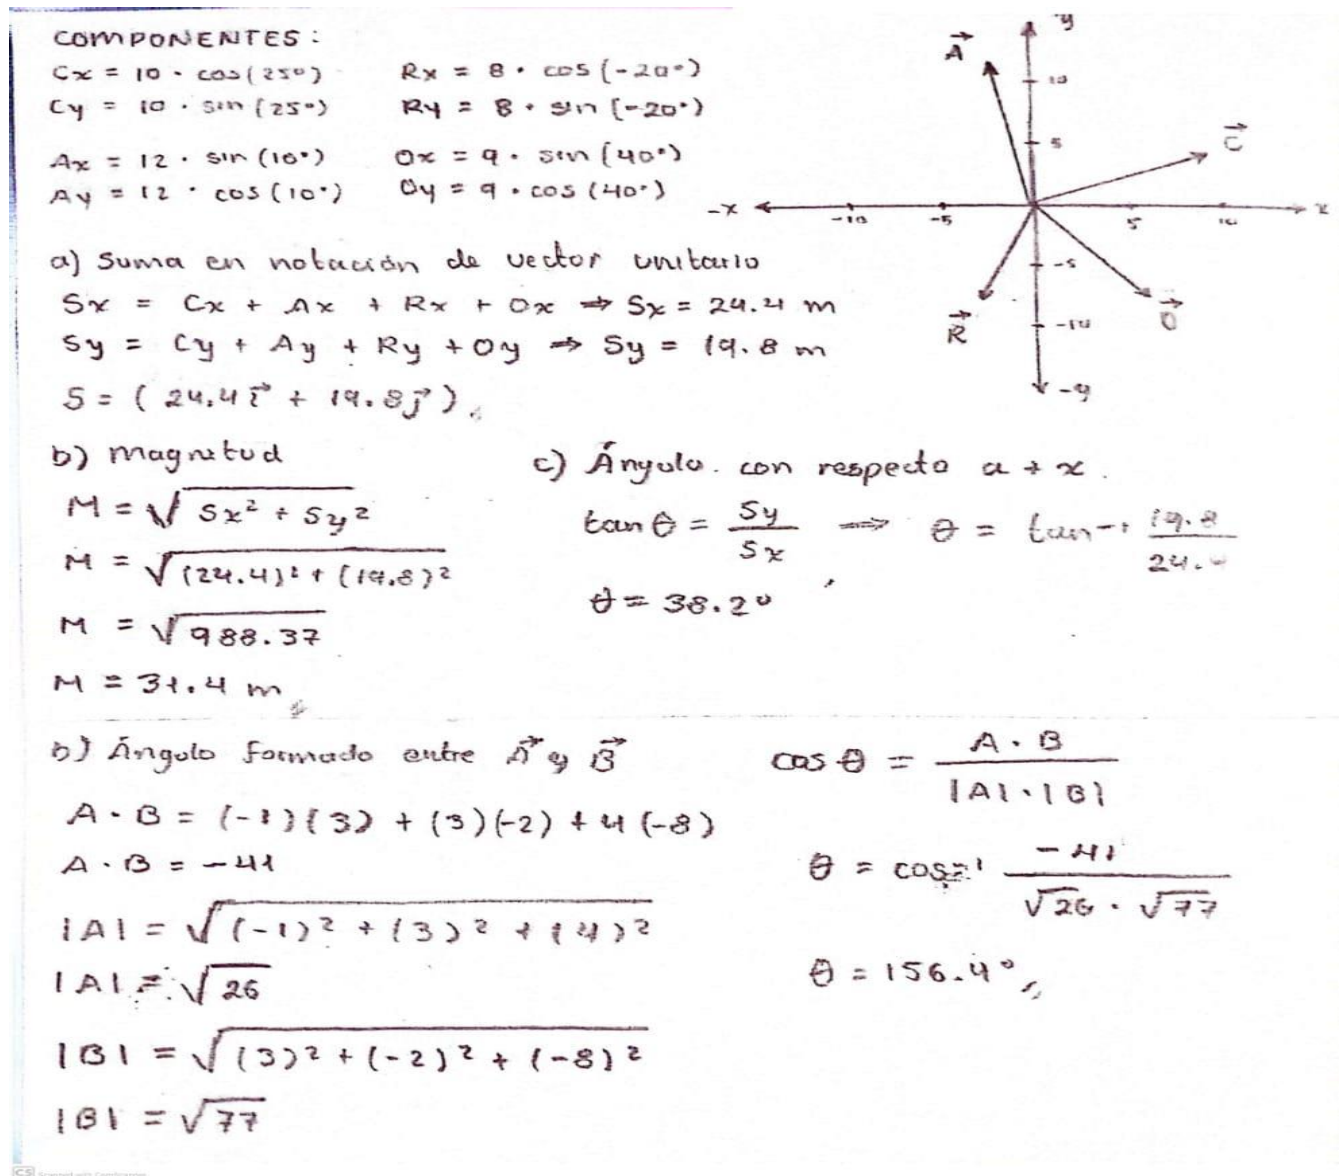 COMPONENTES:
Cx = 10 · cos(25°)
Cy = 10 · sin(25°)
Rx = 8 · cos(-20°)
Ry = 8 · sin(-20°)
Ax = 12 · sin(10°)
Ay = 12 · cos(10°)
Ox = 9 · sin(40°)
Oy = 9 · cos(40°)
y
A
10
5
C
-x
-10
-5
5
10
x
-5
-10
R
O
-y
a) Suma en notación de vector unitario
Sx = Cx + Ax + Rx + Ox ⇒ Sx = 24.4 m
Sy = Cy + Ay + Ry + Oy ⇒ Sy = 19.8 m
S = (24.4i + 19.8j)
b) Magnitud
M = √Sx² + Sy²
M = √(24.4)² + (19.8)²
M = √988.37
M = 31.4 m
c) Ángulo con respecto a +x.
tan θ = Sy/Sx ⇒ θ = tan-1 19.8/24.4
θ = 38.2°
b) Ángulo formado entre A y B
A · B = (-1)(3) + (3)(-2) + 4(-8)
A · B = -41
|A| = √(-1)² + (3)² + (4)²
|A| = √26
|B| = √(3)² + (-2)² + (-8)²
|B| = √77
cos θ = A · B / |A| · |B|
θ = cos-1 -41 / √26 · √77
θ = 156.4°
CS Scanned with CamScanner